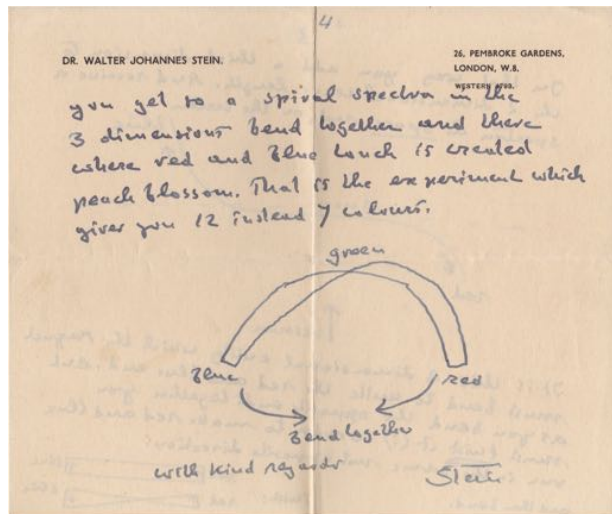 4
DR. WALTER JOHANNES STEIN.
26, PEMBROKE GARDENS,
LONDON, W.8.
WESTERN
you get to a spiral spectra in the
3 dimensions bend together and there
where red and Blue touch is created
peach blossom. That is the experiment which
gives you 12 instead 7 colours.
green
Blue
red
Bend together
with kind regards
Stein